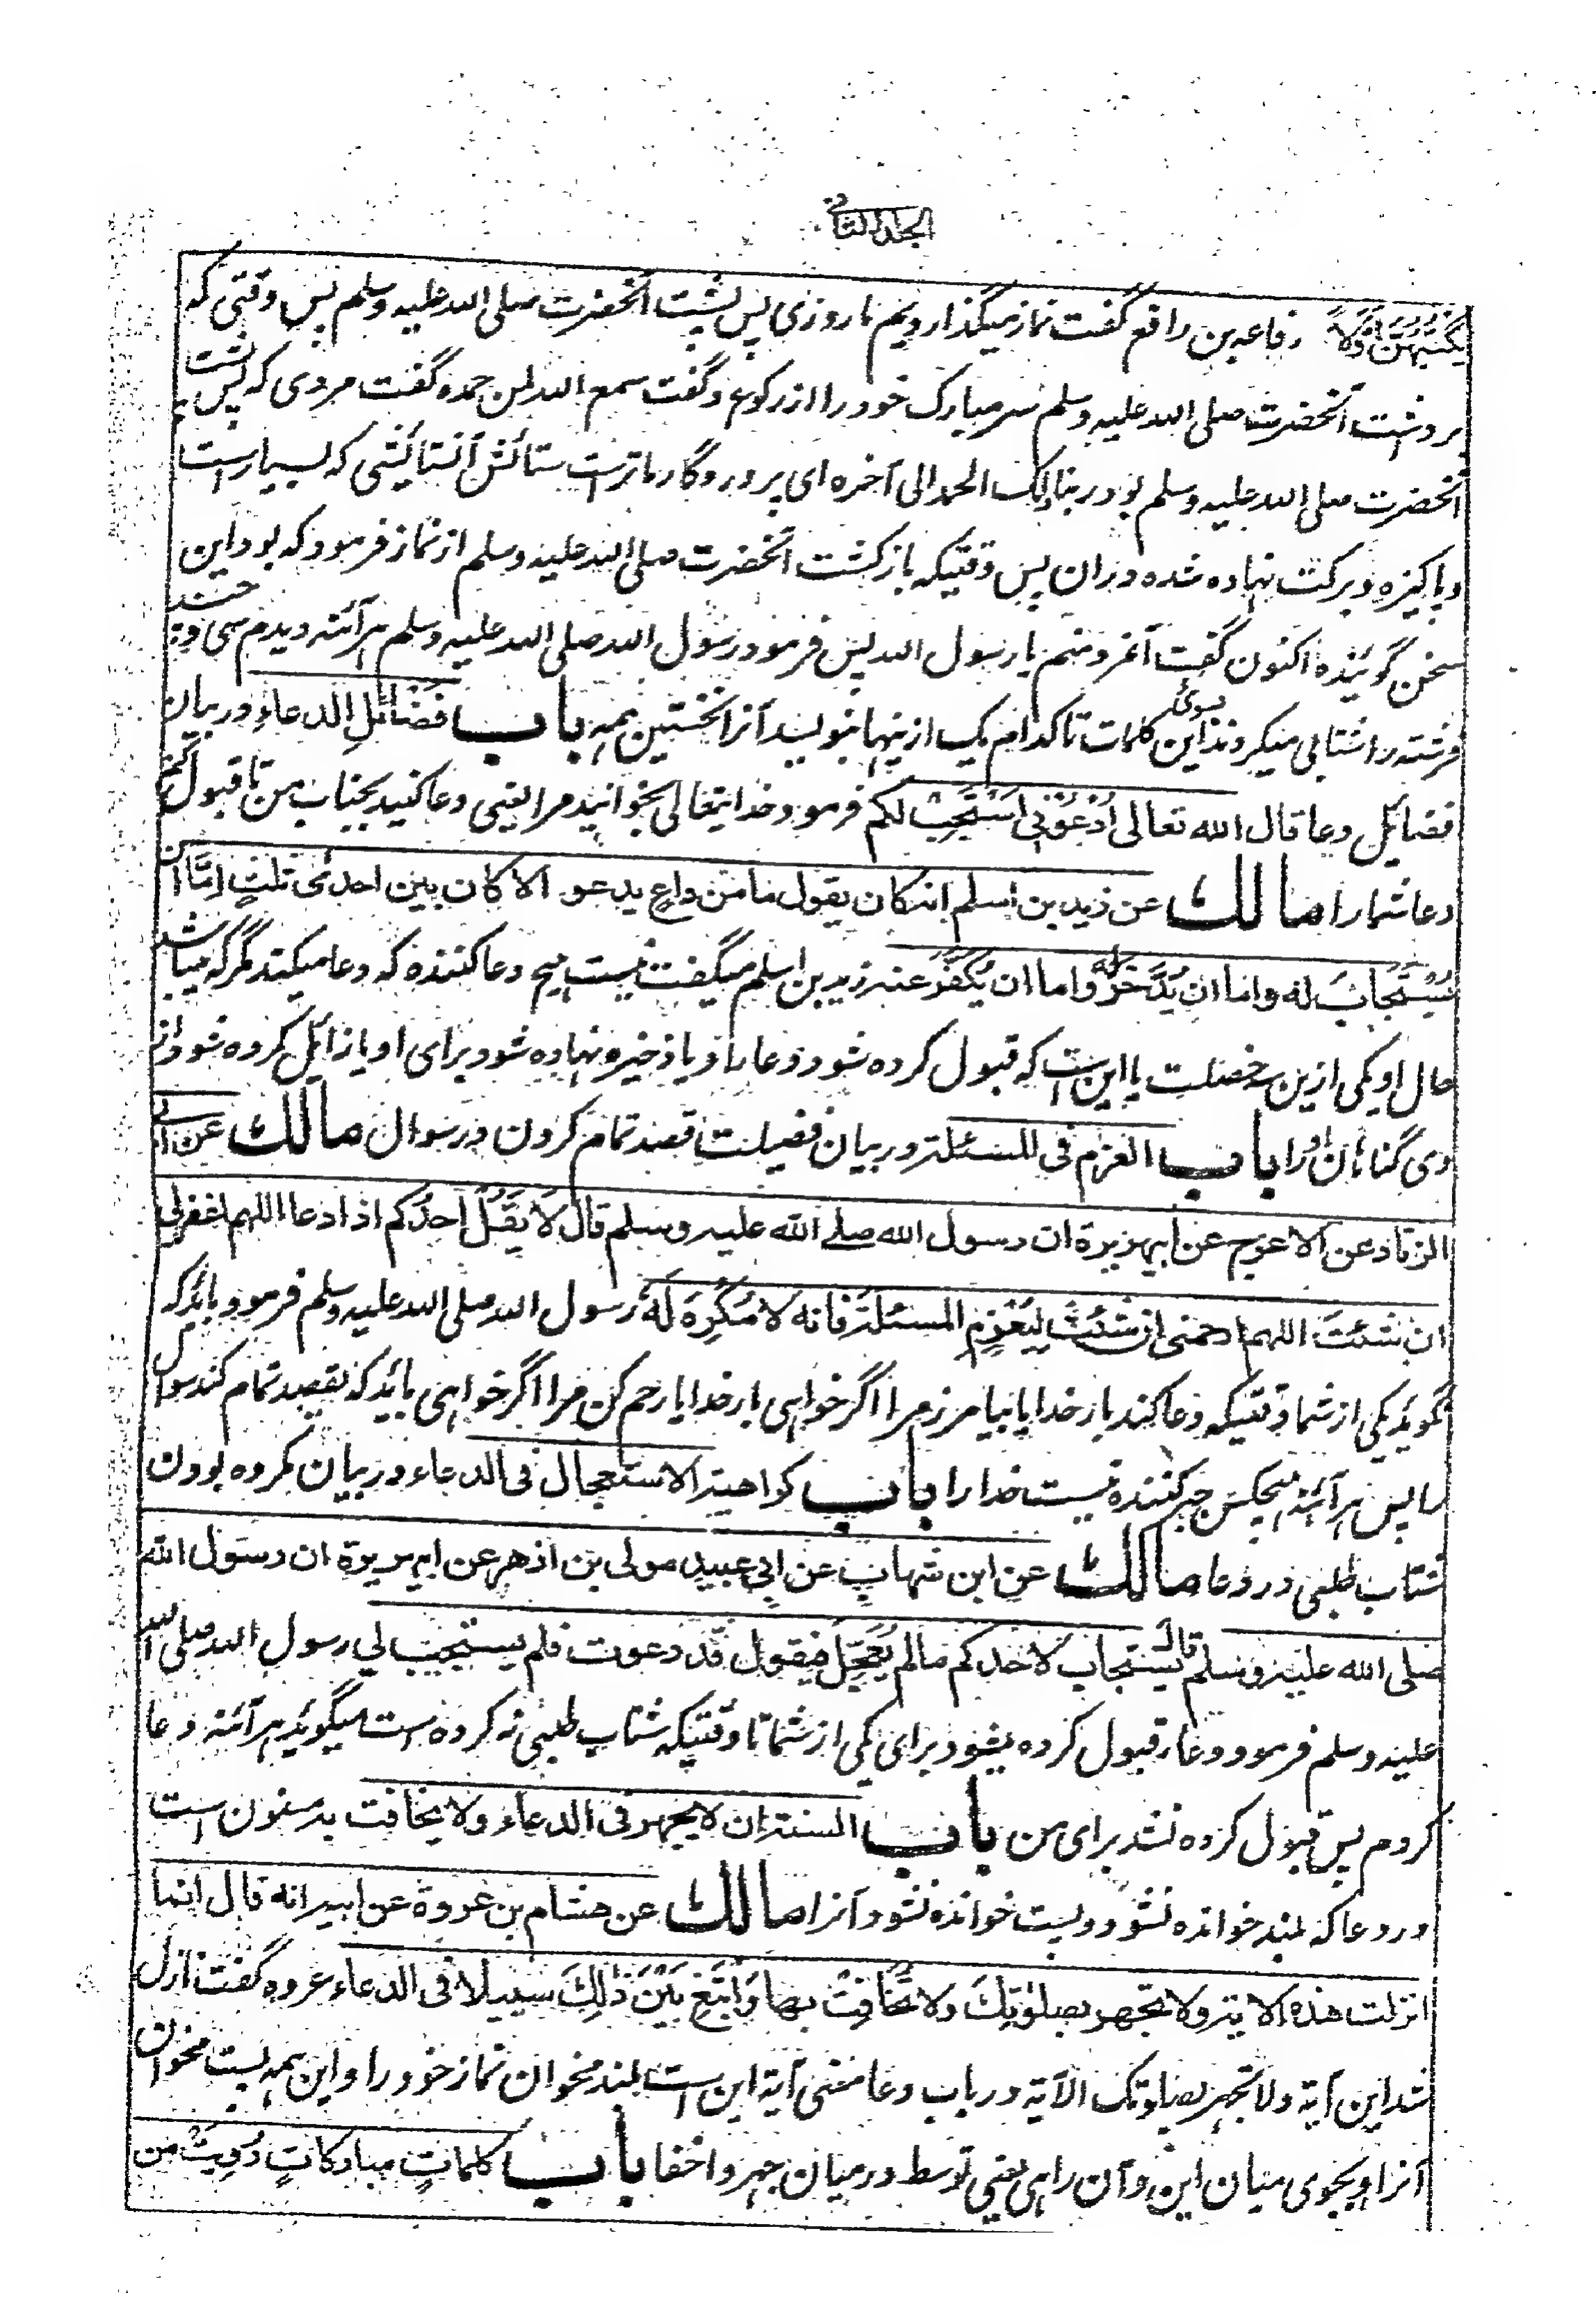 الجلد الثانی
یکتبهن اولا رفاعه بن رافع گفت نماز میگذاردیم ما روزی پس پشت آنحضرت صلی الله علیه وسلم پس وقتی که
برداشت آنحضرت صلی الله علیه وسلم سر مبارک خود را از رکوع و گفت سمع الله لمن حمده گفت مردی که پس پشت
آنحضرت صلی الله علیه وسلم بود ربنا ولک الحمد الی آخره ای پروردگار ما تراست ستائش آنستائشی که بسیار است
و پاکیزه و برکت نهاده شده دران پس وقتیکه بازگشت آنحضرت صلی الله علیه وسلم از نماز فرمود که بود این
سخن گوینده اکنون گفت آنمرد منم یا رسول الله پس فرمود رسول الله صلی الله علیه وسلم هر آئنه دیدم سی و چند
فرشته را شتابی میکردند بسوی این کلمات تا کدام یک ازینها بنویسد آنرا نخستین همه باب فضائل الدعاء در بیان
فضائل دعا قال الله تعالی اُدْعُوْنِی اَسْتَجِبْ لکم فرمود خدایتعالی بخوانید مرا یعنی دعا کنید بجناب من تا قبول کنم
دعا شما را مالک عن زید بن اسلم انه کان یقول ما من داع یدعو الا کان بین احدی ثلث اِمَّا ان
یُسْتَجَابَ له واما ان یُدَّخَرَ له واما ان یُکَفَّرَ عنه زید بن اسلم میگفت نیست هیچ دعا کننده که دعا میکند مگر که میباشد
حال او یکی ازین سه خصلت یا این است که قبول کرده شود دعا را و یا ذخیره نهاده شود برای او یا زائل کرده شود از
وی گناهان او را باب العزم فی المسئلة در بیان فضیلت قصد تمام کردن در سوال مالک عن ابی
الزناد عن الاعرج عن ابی هریرة ان رسول الله صلے الله علیه وسلم قال لا یَقُلْ احدُکم اذا دعا اللهم اغفرلی
ان شئتَ اللهم ارحمنی ان شئتَ لِیَعْزِمِ المسئلة فانه لا مُکْرِهَ لَهٗ رسول الله صلی الله علیه وسلم فرمود باید که
نگوید یکی از شما وقتیکه دعا کند بار خدایا بیامرز مرا اگر خواهی بار خدایا رحم کن مرا اگر خواهی باید که بقصد تمام کند سوال
را پس هر آئنه هیچکس جبر کننده نیست خدا را باب کراهیة الاستعجال فی الدعاء در بیان مکروه بودن
شتاب طلبی در دعا مالک عن ابن شهاب عن ابی عبید مولی بن ازهر عن ابی هریرة ان رسول الله
صلی الله علیه وسلم قال یستجاب لاحدکم مالم یَعْجَلْ فیقول قد دعوت فلم یستجب لی رسول الله صلی الله
علیه وسلم فرمود دعا قبول کرده میشود برای یکی از شما تا وقتیکه شتاب طلبی نه کرده است میگوید هر آئنه دعا
کردم پس قبول کرده نشد برای من باب السنة ان لا یجهر فی الدعاء ولا یخافت به مسنون است
در دعا که بلند خوانده نشود و پست خوانده نشود آنرا مالک عن هشام بن عروة عن ابیه انه قال انما
انزلت هذه الایة ولا تجهر بصلوتِكَ ولا تُخَافِتْ بها وَابْتَغِ بَیْنَ ذٰلِكَ سبیلا فی الدعاء عروه گفت نازل
شد این آیة ولا تجهر بصلوتک الآیة در باب دعا معنی آیة این است بلند مخوان نماز خود را و این همه پست مخوان
آنرا و بجوی میان این و آن راهی یعنی توسط در میان جهر و اخفا باب کلماتٍ مبارکاتٍ رُوِیَتْ من